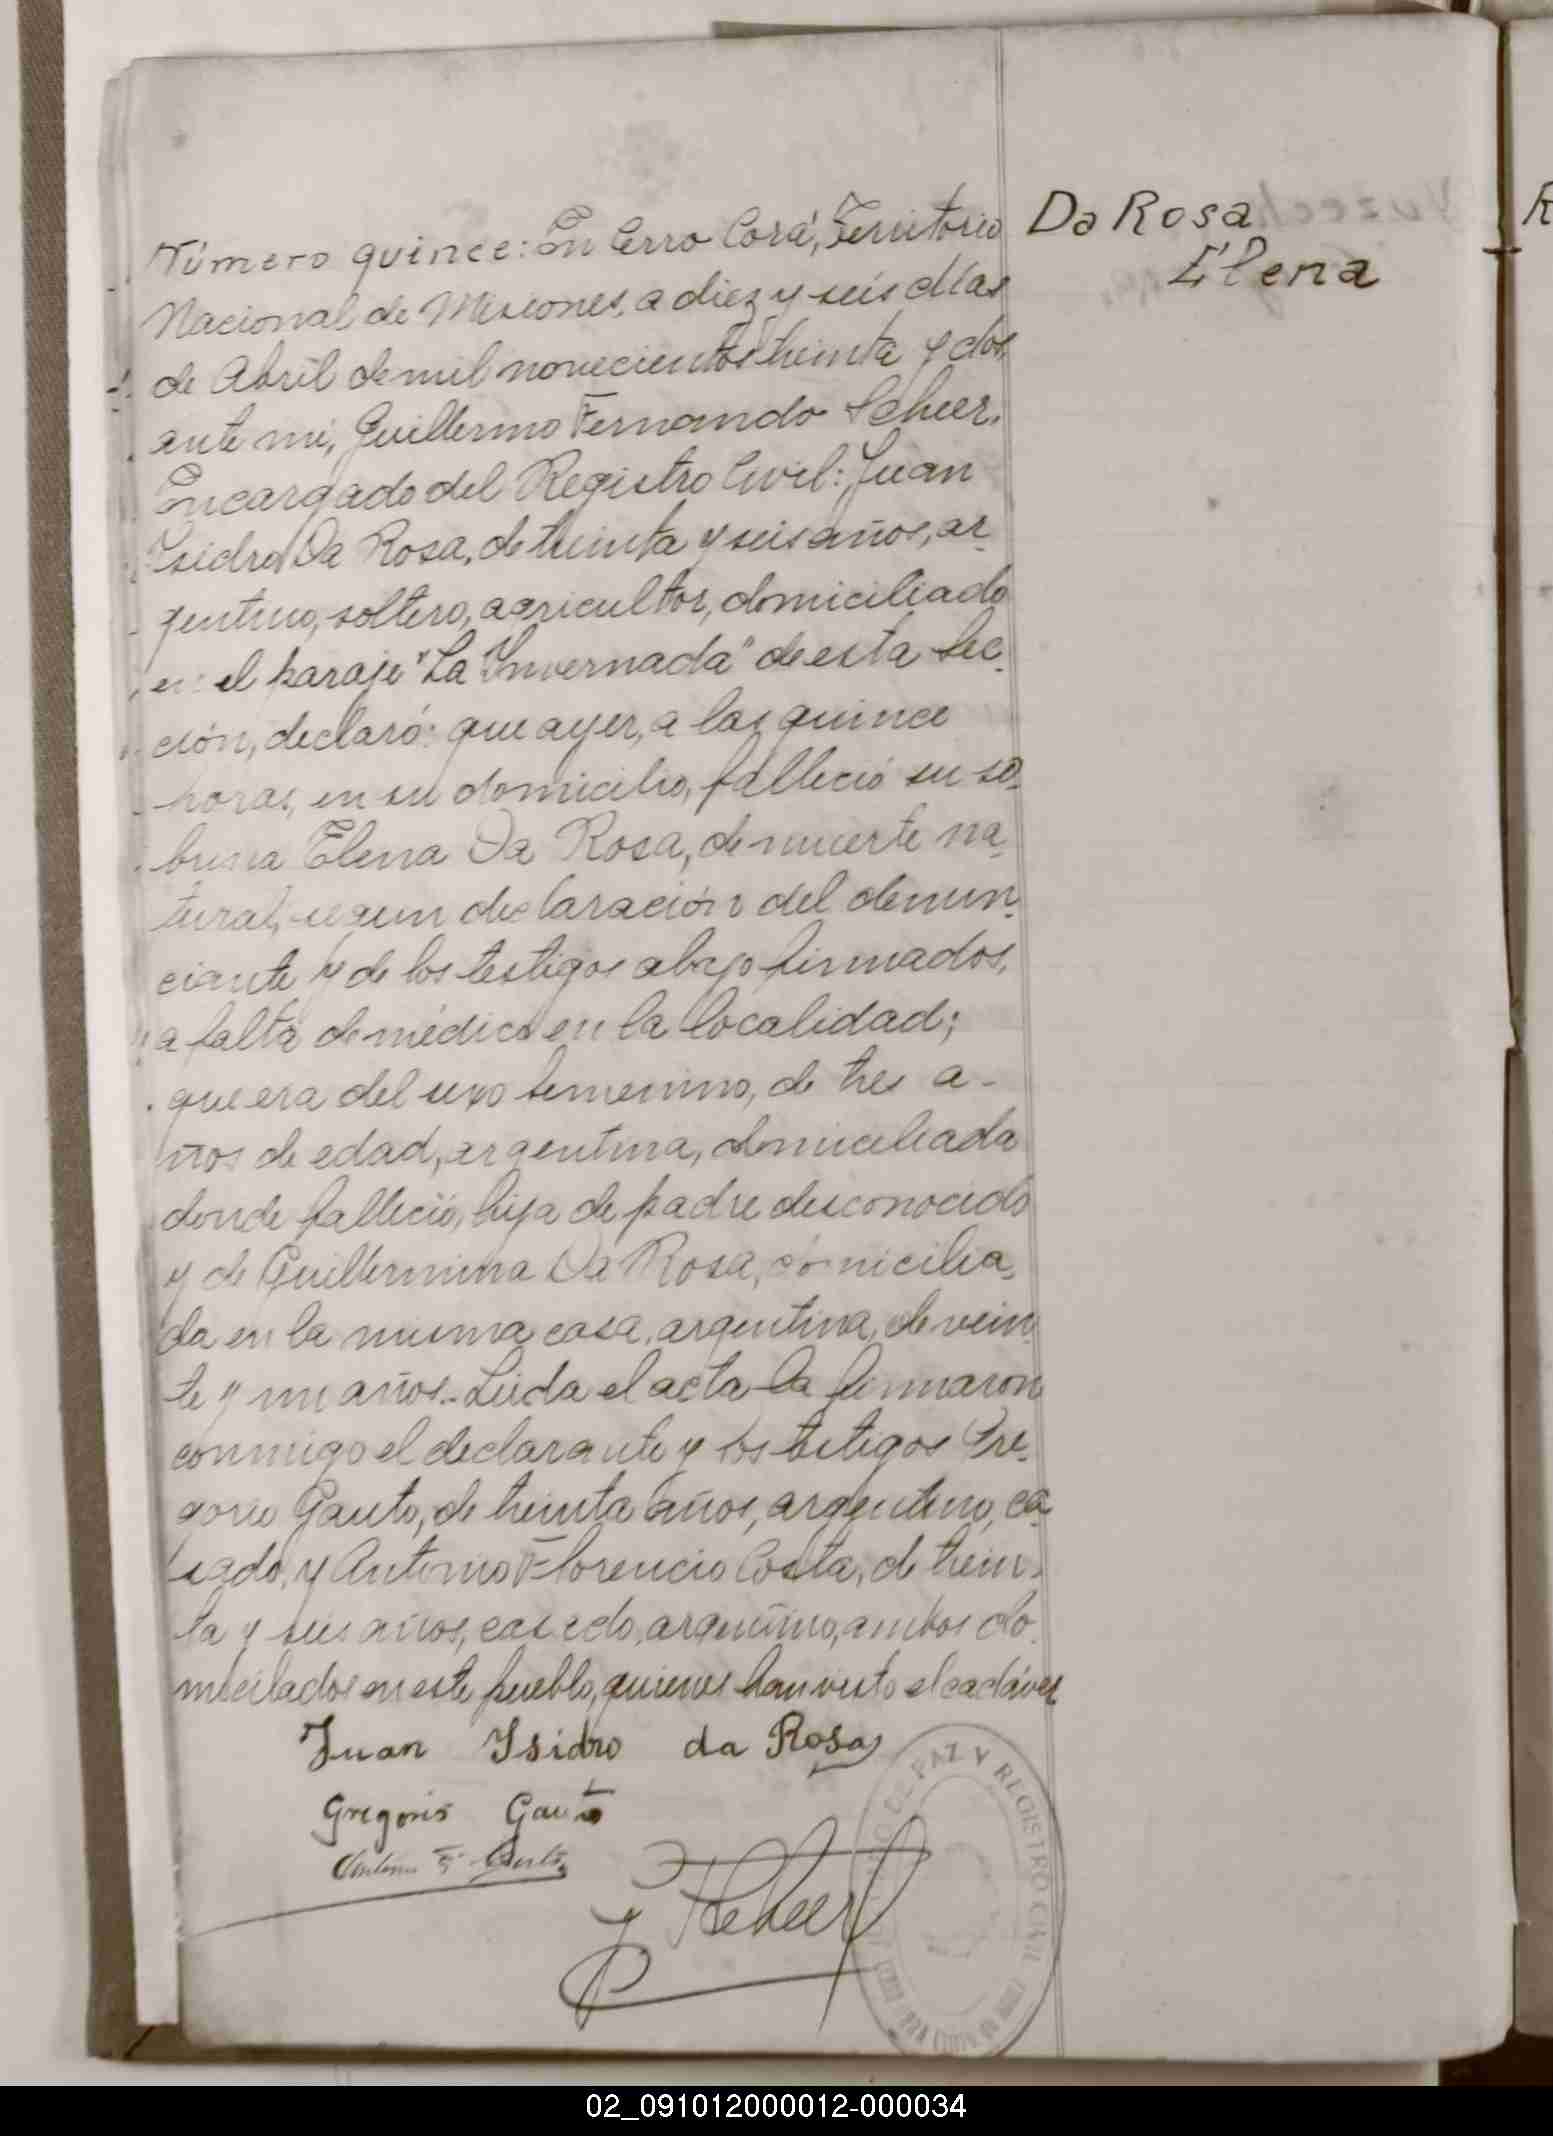 Da Rosa
Elena
Número quince: En Cerro Corá, Territorio
Nacional de Misiones, a diez y seis días
de Abril de mil novecientos treinta y dos,
ante mi, Guillermo Fernando Scheer,
Encargado del Registro Civil: Juan
Isidro Da Rosa, de treinta y seis años, ar-
gentino, soltero, agricultor, domiciliado
en el paraje "La Invernada" de esta Sec-
ción, declaró: que ayer, a las quince
horas, en su domicilio, falleció su so-
brina Elena Da Rosa, de muerte na-
tural, segun declaración del denun-
ciante y de los testigos abajo firmados,
a falta de médico en la localidad;
que era del sexo femenino, de tres a-
ños de edad, argentina, domiciliada
donde falleció, hija de padre desconocido
y de Guillermina Da Rosa, domicilia-
da en la misma casa, argentina, de vein-
te y un años.- Leida el acta la firmaron
conmigo el declarante y los testigos Gre-
gorio Gauto, de treinta años, argentino, ca-
sado, y Antonio Florencio Costa, de trein-
ta y seis años, casado, argentino, ambos do-
miciliados en este pueblo, quienes han visto el cadáver
Juan Isidro da Rosa
Gregorio Gauto
Antonio F. Costa
Scheer
DE PAZ Y REGISTRO CIVIL
R
02_091012000012-000034